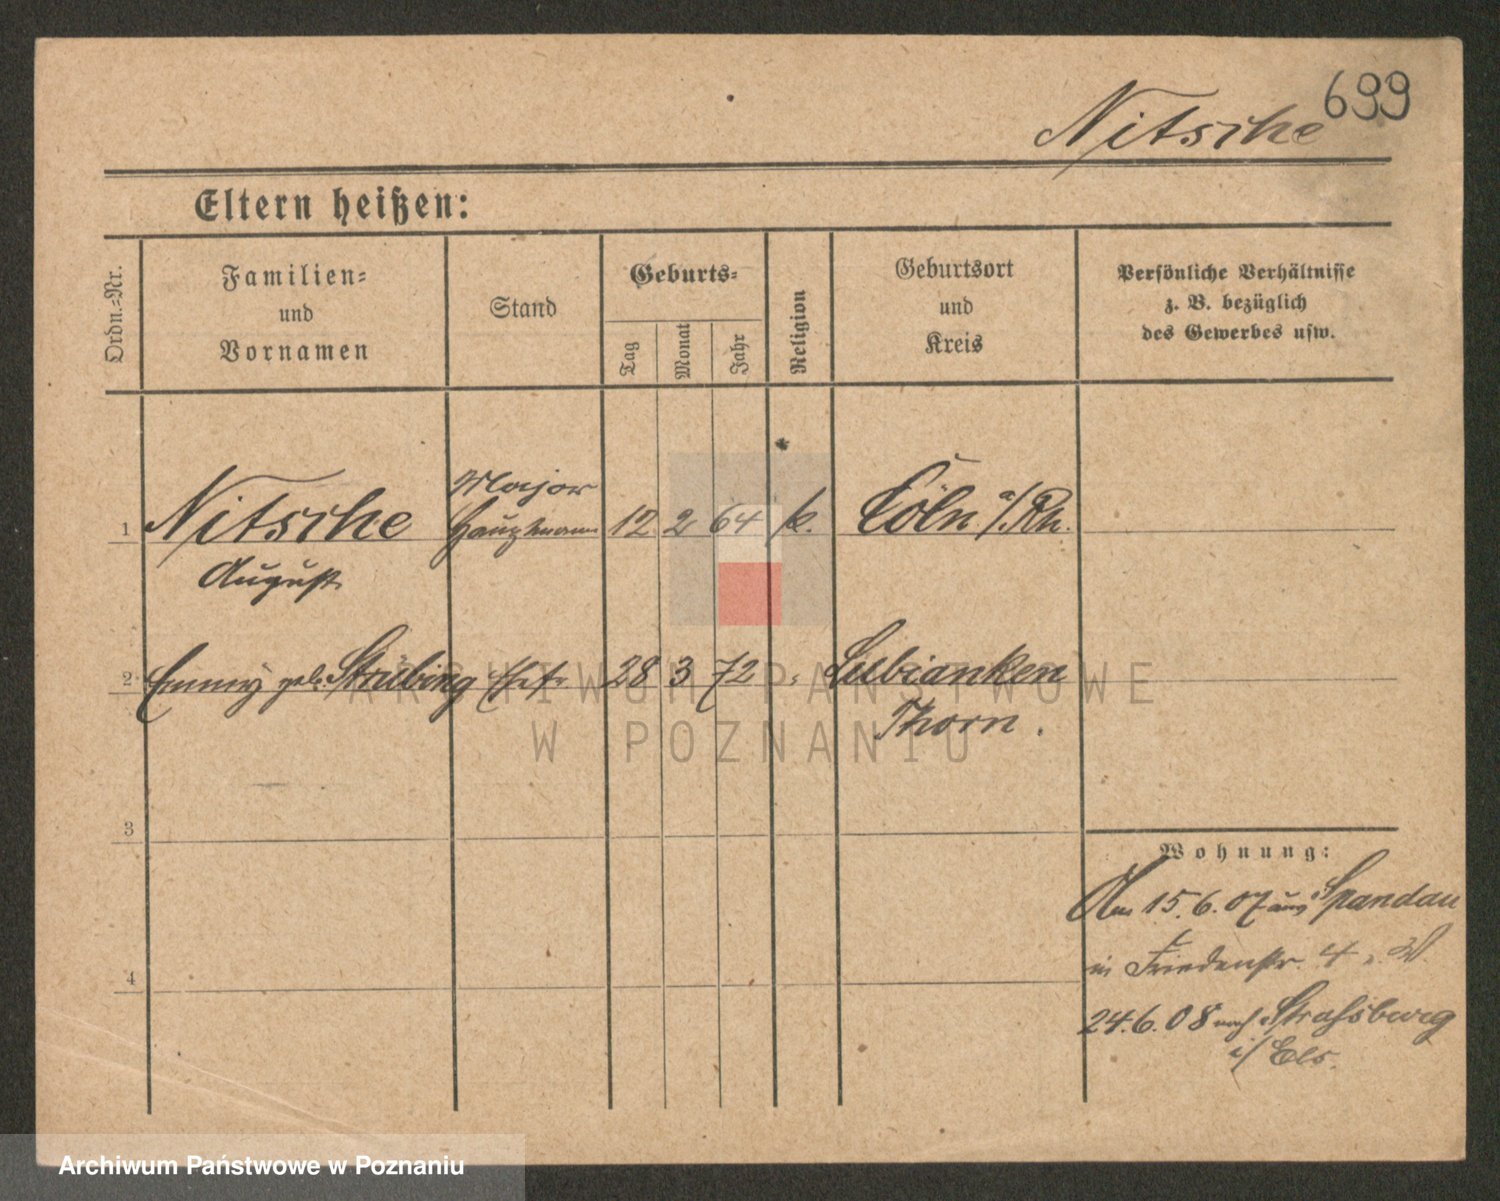 699
Nitsche
Eltern heißen:
Ordn.-Nr.
Familien- und Vornamen
Stand
Geburts-
Tag
Monat
Jahr
Religion
Geburtsort und Kreis
Persönliche Verhältnisse z. B. bezüglich des Gewerbes usw.
Major
1 Nitsche Hauptmann 12 2 64 k. Cöln a/Rh.
August
2 Emmy geb. Strübing Ehefr. 28 3 72 " Lubianken
Thorn.
3
4
Wohnung:
Am 15.6.07 aus Spandau
in Friedenstr. 4
24.6.08 nach Straßburg
i/Els.
ARCHIWUM PAŃSTWOWE
W POZNANIU
Archiwum Państwowe w Poznaniu